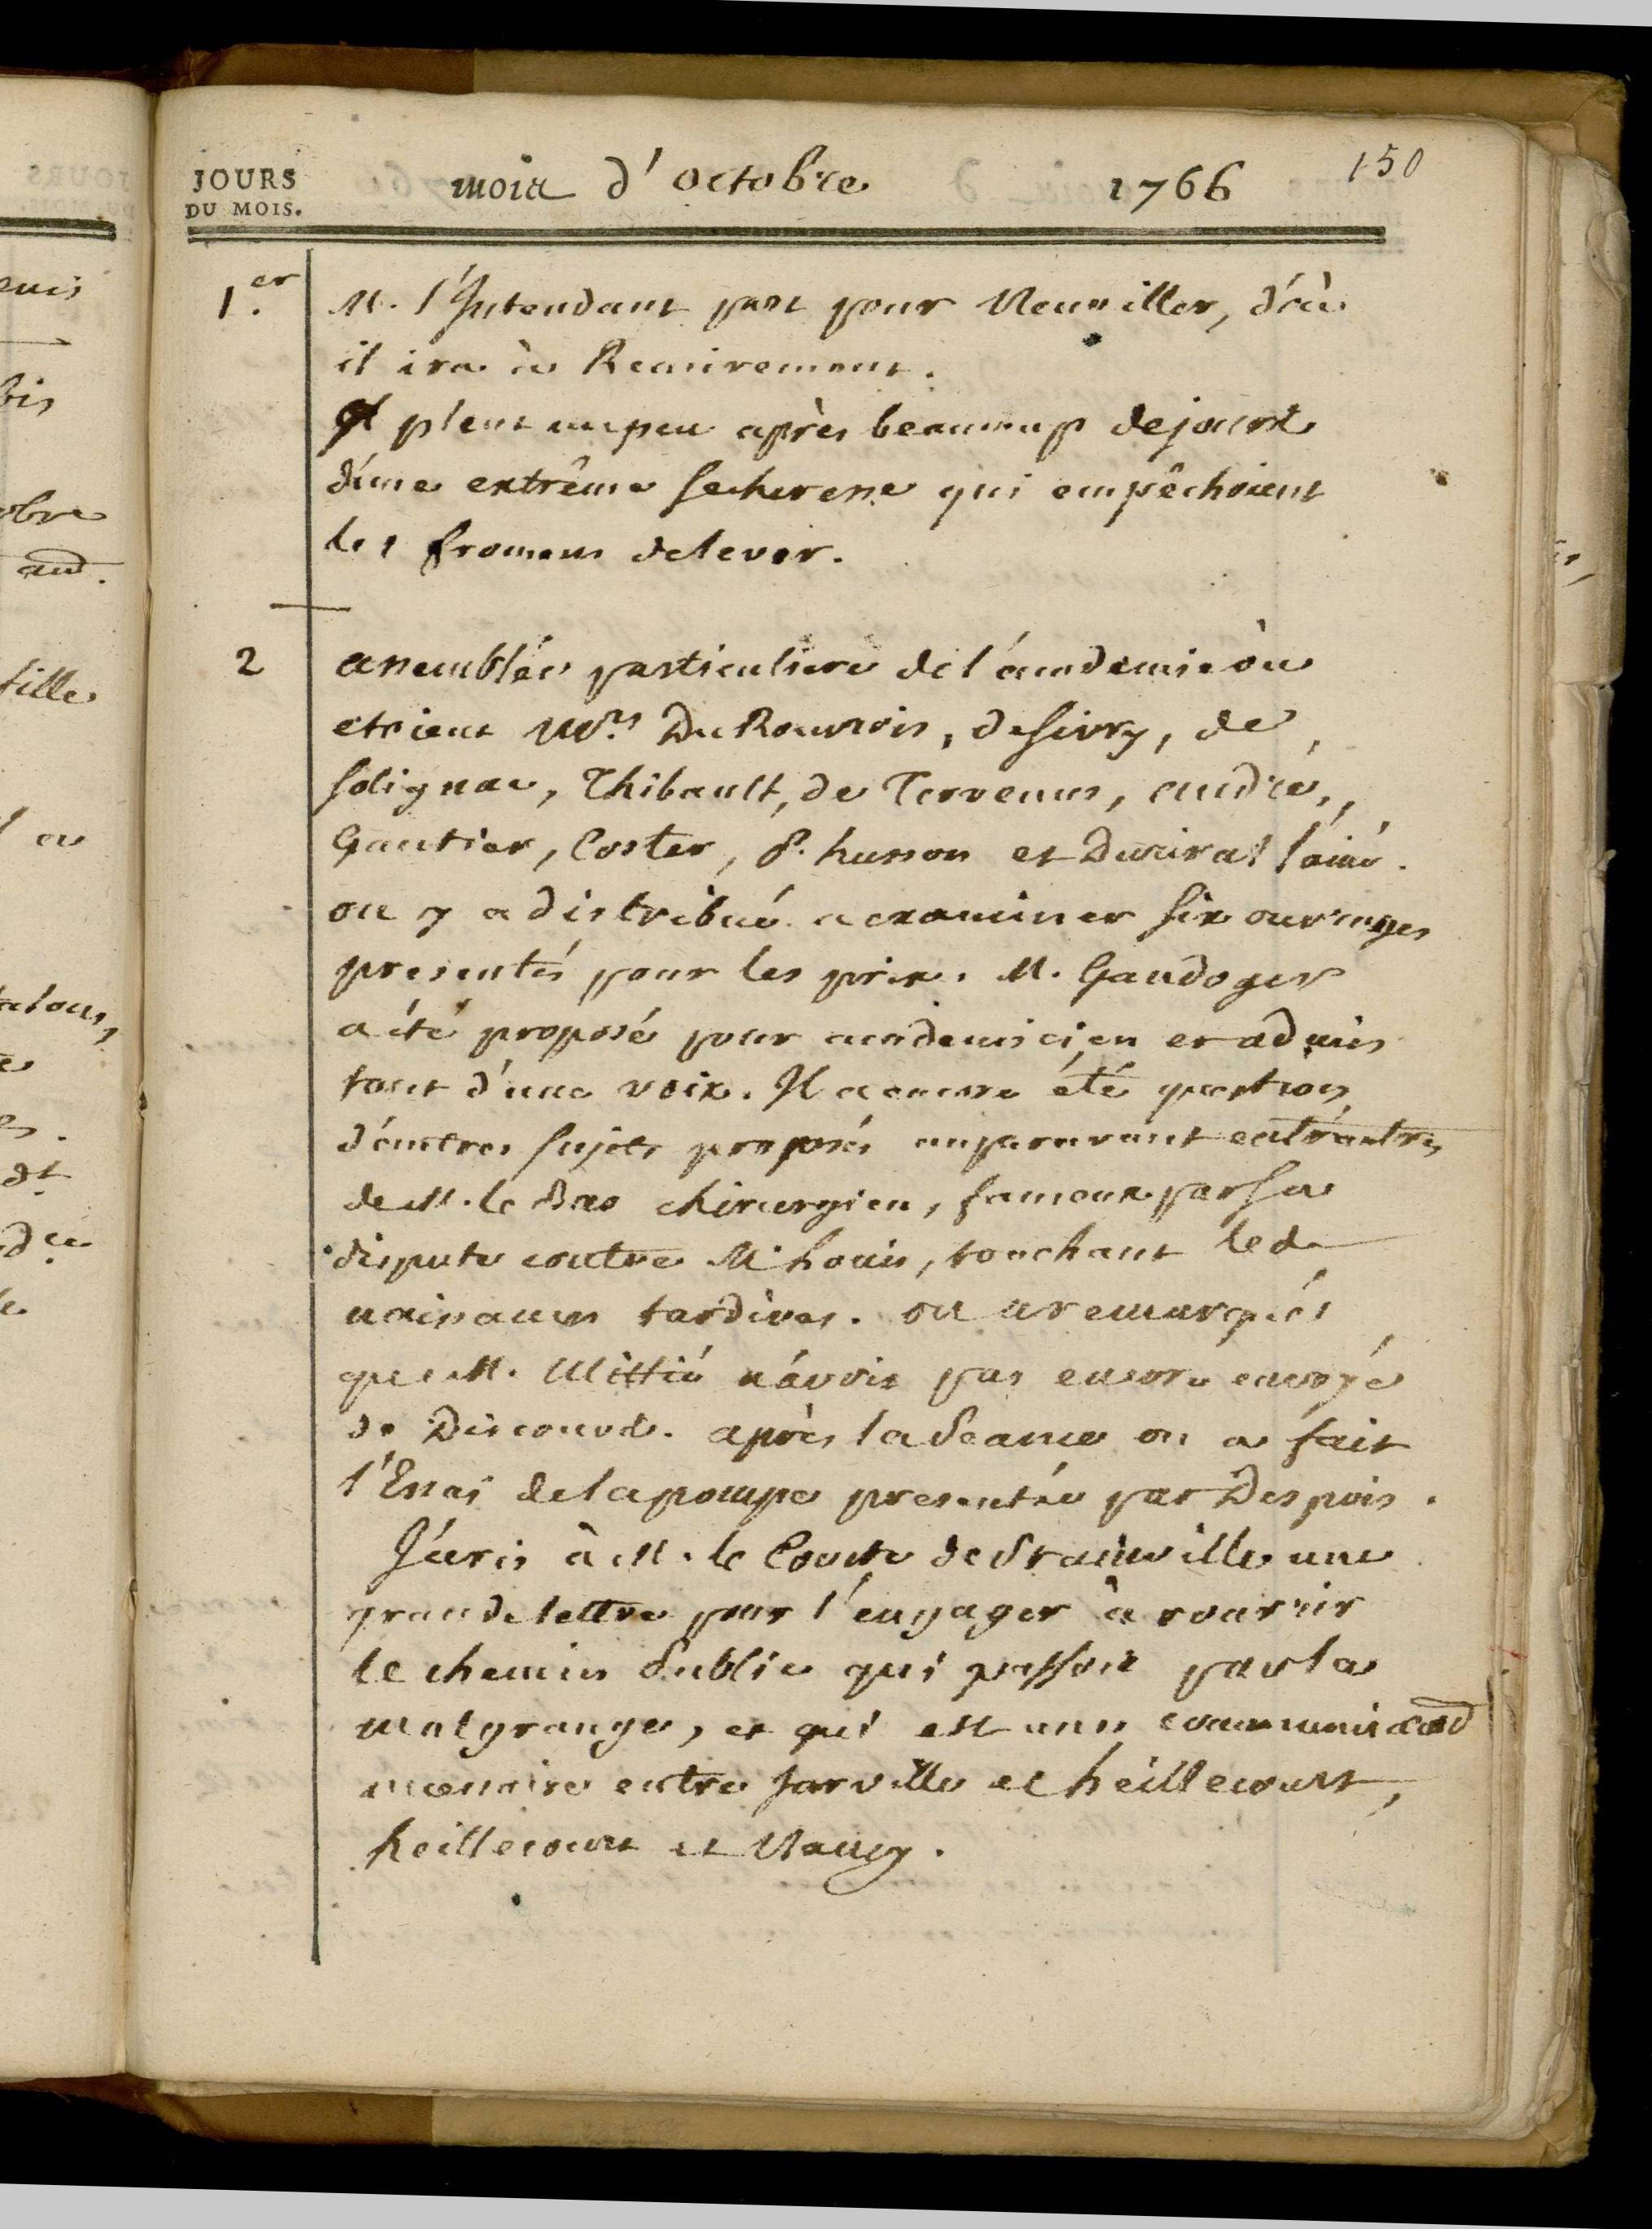 JOURS
DU MOIS.
mois d'octobre 1766 150
1.er M. l'Intendant part pour Neuviller, d'où
il ira à Remiremont.
Il pleut un peu après beaucoup de jours
d'une extrême secheresse qui empêchoient
les fromens de lever.
2 assemblée particuliere de l'academie où
etoient Mrs. Du Rouvrois, de Sivry, de
Solignac, Thibault, de Tervenus, André,
Gautier, Coster, P. husson et Durival l'ainé.
on y a distribué a examiner six ouvrages
presentés pour les prix. M. Gandoger
a été proposé pour academicien et admis
tout d'une voix. Il a encore été question
d'autres sujets proposés auparavant entr'autres
de M. le Bas chirurgien, fameux par sa
dispute contre M. Louis, touchant les
naissances tardives. on a remarqué
que M. Mittié n'avoit pas encore envoyé
de Discours. après la Seance on a fait
l'Essai de la pompe presentée par Despois.
J'écris à M. le Comte de Stainville une
grande lettre pour l'engager à rouvrir
le chemin Public qui passoit par la
malgrange, et qui est une communicaon
necessaire entre Jarville et heillecourt,
heillecourt et Nancy.
euis
bis
obre
aud.
fille